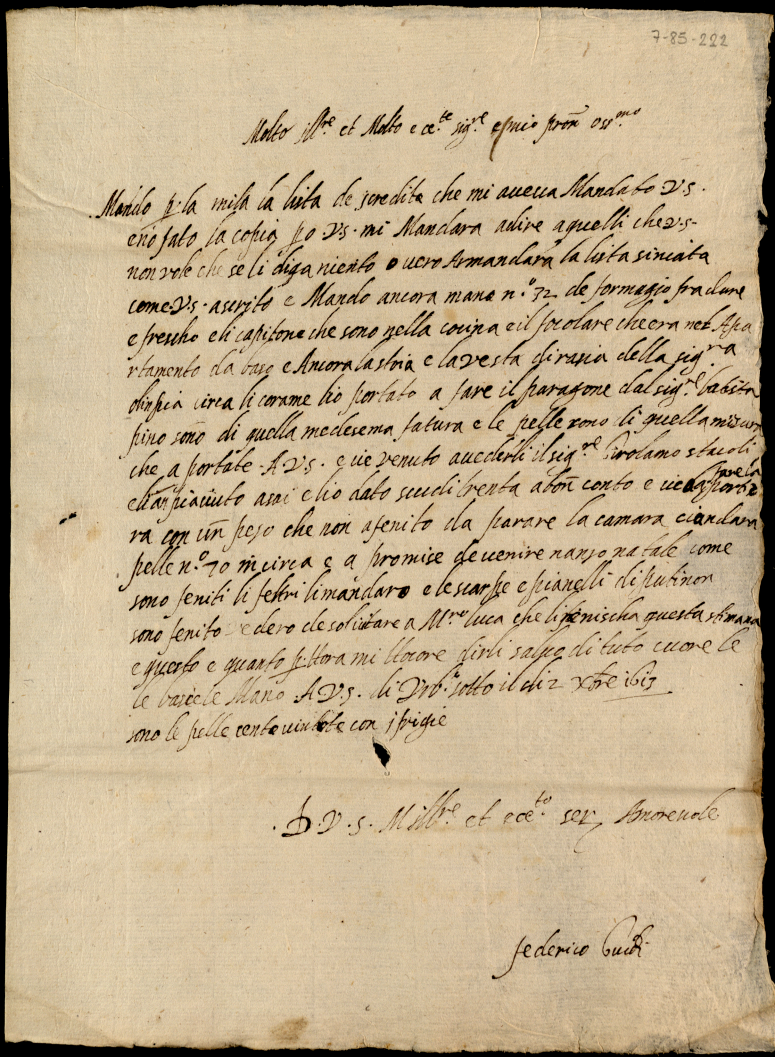 7-85-222
Molto Ill.re et Molto ecc.te sig.re e mio pron oss.mo
Mando p. la mita la lista de screditi che mi aveva Mandato V.S.
e no fato la copia po V.S. mi Mandara a dire a quelli che V.S.
non vole che se li diga niento o vero Armandara la lista sinciata
come V.S. a scrito e Mando ancora mane n.o 32 de formaggio fra dure
e frescho e li capitone che sono nella cocina e il focolare che era nel Apa
rtamento da baso e Ancora la stoia e la vesta di rasia della sig.ra
olinpia circa li corame lio portato a fare il paragone dal sig.re batista
pino sono di quella medesema fatura e le pelle sono di quella misura
che a portate A V.S. e vie venuto a vederli il sig.re Girolamo stacoli
e li an piaciuto asai e lio dato scudi trenta a bon conto e
fare la
ra con un peso che non a fenito da parare la camara ci andara
pelle n.o 70 in circa e a promise de venire nanzo natale come
sono feniti li feltri li mandaro e le scarpe e pianelli di putinon
sono fenito vedero de solicitare a M.ro luca che li fenischa questa stimana
e questo e quanto p. hora mi ocore dirli salvo di tuto cuore le
le bascie le Mano A V.S. di Urb.o sotto il di 2 Xbre 1613
sono le pelle cento vintote con i frigie
D. V.S. M Ill.re et ecc.to ser. Amorevole
federico Guidi